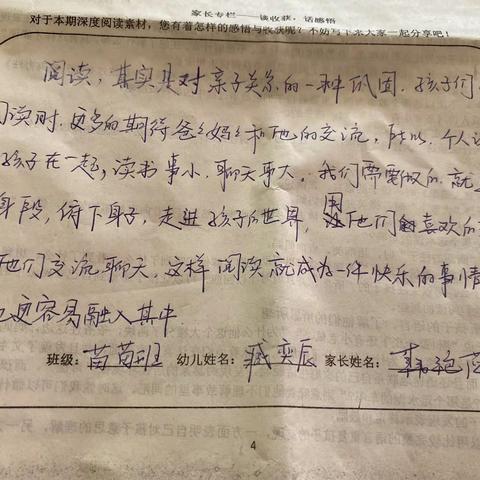 家长专栏——谈收获，话感悟
对于本期深度阅读素材，您有着怎样的感悟与收获呢？不妨写下来大家一起分享吧！
阅读，其实是对亲子关系的一种巩固，孩子们
阅读时，更多的期待爸爸妈妈和他的交流，所以，个人认
孩子在一起，读书事小，聊天事大。我们需要做的，就
身段，俯下身子，走进孩子的世界，用他们喜欢的
他们交流聊天，这样阅读就成为一件快乐的事情
更容易融入其中
班级：苗苗班 幼儿姓名：臧奕辰 家长姓名：
4